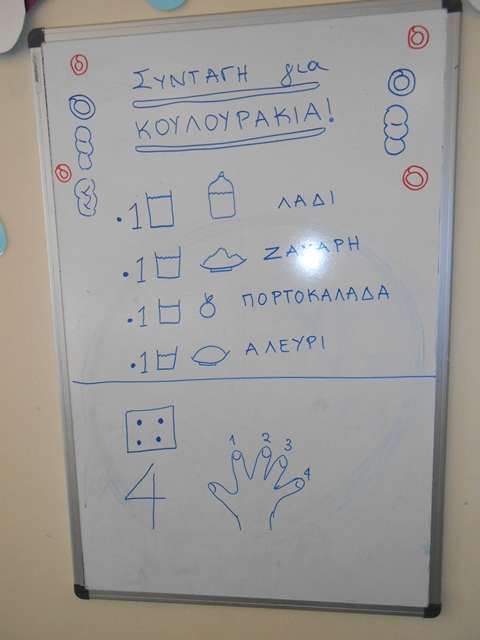 ΣΥΝΤΑΓΗ για
ΚΟΥΛΟΥΡΑΚΙΑ!
• 1 ΛΑΔΙ
• 1 ΖΑΧΑΡΗ
• 1 ΠΟΡΤΟΚΑΛΑΔΑ
• 1 ΑΛΕΥΡΙ
1 2 3 4
4